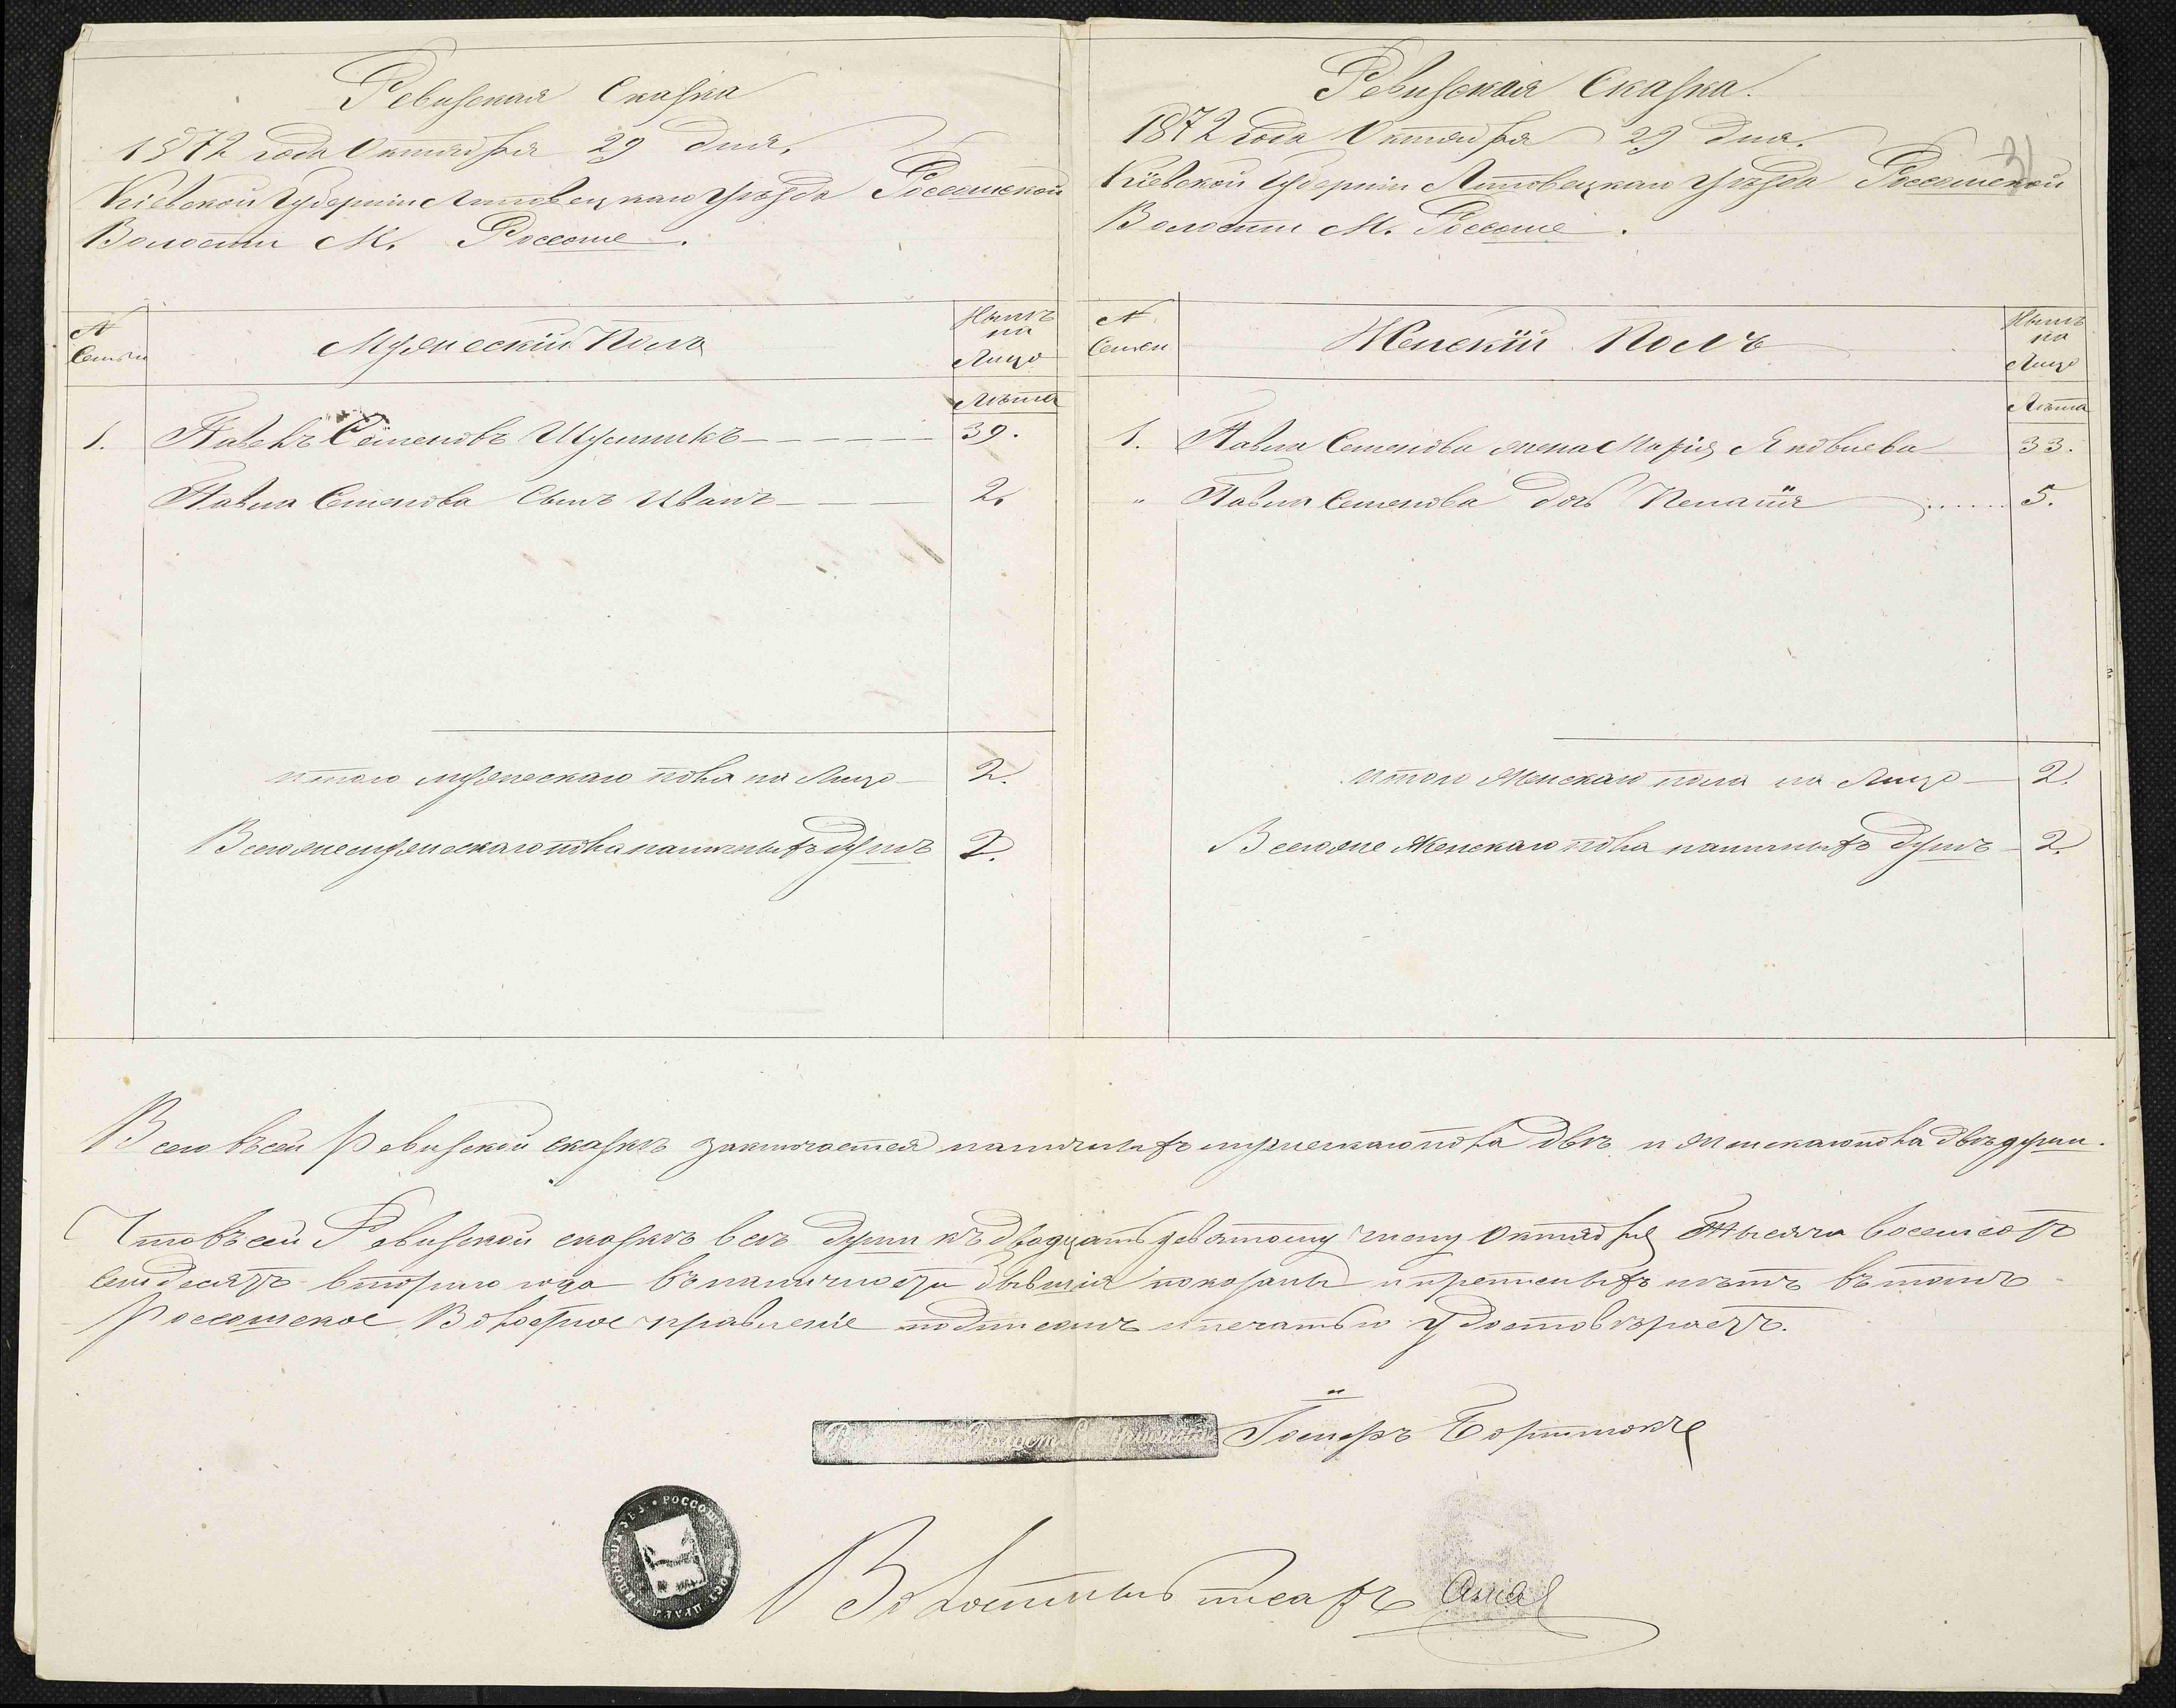 Ревизская Сказка
1872 года Октября 29 дня.
Кіевской Губерніи Липовецкаго Уѣзда Россошской
Волости М. Россоше.
№ Семьи
Мужескій Полъ
Нынѣ на Лицо
Лѣта
1. Павелъ Семеновъ Шусликъ 39.
Павла Семенова Сынъ Иванъ 2.
итого мужескаго пола на Лицо 2.
Всего же мужескаго пола наличныхъ душъ 2.
Ревизская Сказка.
1872 года Октября 29 дня.
Кіевской Губерніи Липовецкаго Уѣзда Россошской
Волости М. Россоше.
№ Семьи
Женскій Полъ
Нынѣ на Лицо
Лѣта
1. Павла Семенова жена Марія Яковлева 33.
" Павла Семенова дочь Пелагія 5.
итого Женскаго пола на Лицо 2.
Всего же Женскаго пола наличныхъ душъ 2.
Всего въ сей Ревизской сказкѣ заключается наличныхъ мужескаго пола двѣ и женскаго пола двѣ души.
Что въ сей Ревизской сказкѣ всѣ души къ двадцать девятому числу Октября Тысяча восемсотъ
семдесятъ втораго года въ наличности бывшія показаны и нѣтъ въ томъ
Россошское Волостное правленіе подписомъ и печатью удостовѣряетъ.
Волостный писарь